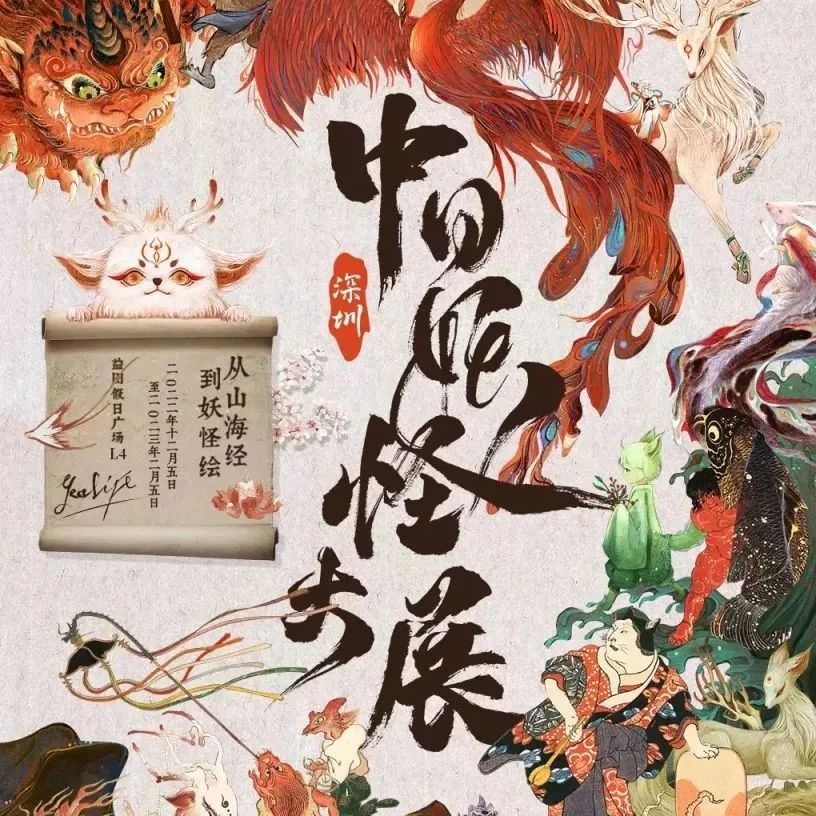 中日妖怪大展
深圳
从山海经
到妖怪绘
二〇二二年十二月五日
至二〇二三年二月五日
益田假日广场 L4